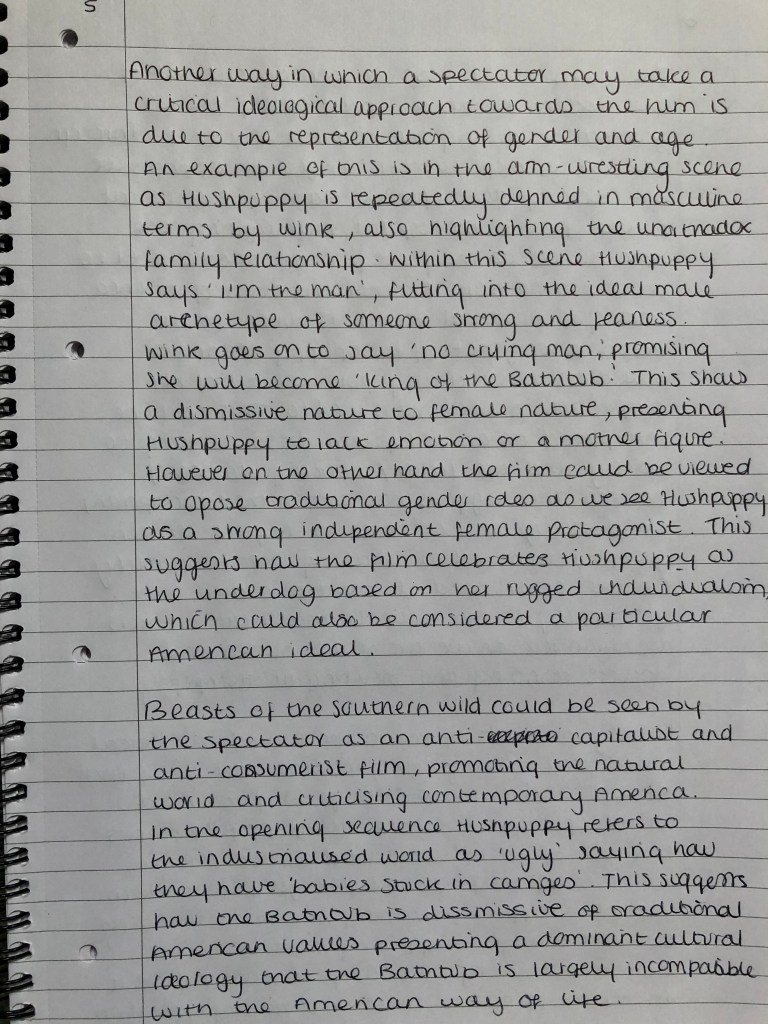 5
Another way in which a spectator may take a
critical ideological approach towards the film is
due to the representation of gender and age.
An example of this is in the arm-wrestling scene
as Hushpuppy is repeatedly defined in masculine
terms by Wink, also highlighting the unortnadox
family relationship. Within this scene Hushpuppy
says 'I'm the man', fitting into the ideal male
archetype of someone strong and fearless.
Wink goes on to say 'no crying man,' promising
she will become 'King of the Bathtub'. This shows
a dismissive nature to female nature, presenting
Hushpuppy to lack emotion or a mother figure.
However on the other hand the film could be viewed
to opose traditional gender roles as we see Hushpuppy
as a strong independent female protagonist. This
suggests how the film celebrates Hushpuppy as
the underdog based on her rugged individualism,
which could also be considered a particular
American ideal.
Beasts of the Southern wild could be seen by
the spectator as an anti- capitalist and
anti-consumerist film, promoting the natural
world and criticising contemporary America.
In the opening sequence Hushpuppy refers to
the industrialised world as 'ugly' saying how
they have 'babies stuck in carriges'. This suggests
how the Bathtub is dissmissive of traditional
American values presenting a dominant cultural
ideology that the Bathtub is largely incompatible
with the American way of life.